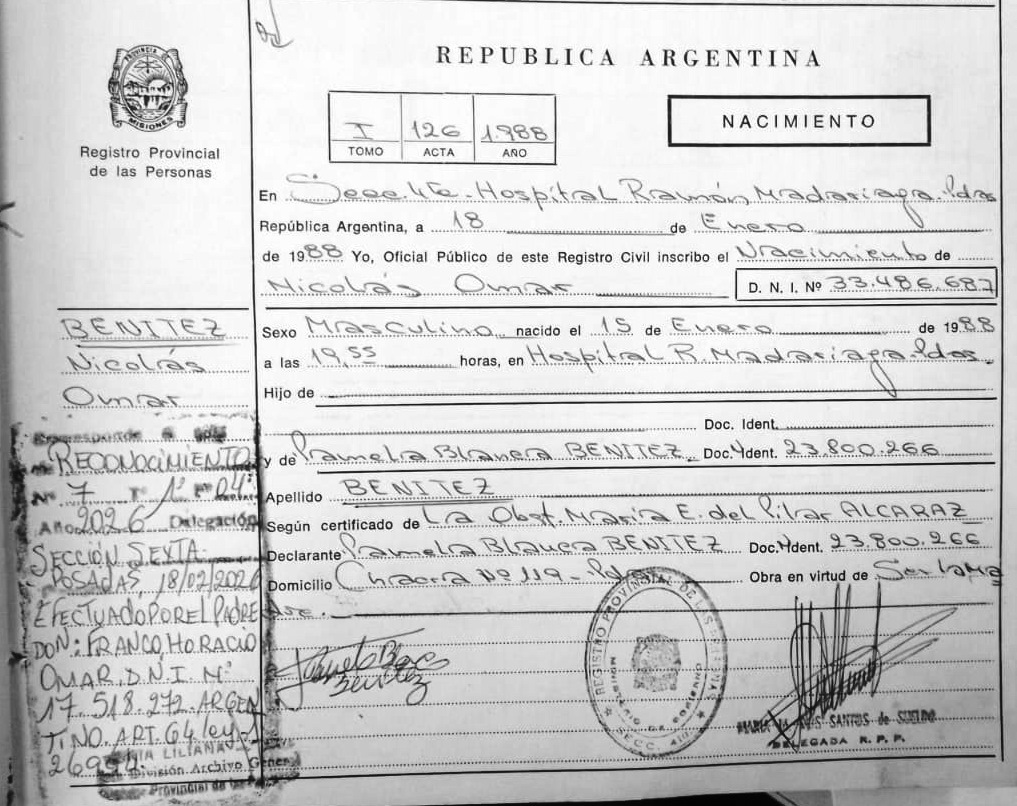 REPUBLICA ARGENTINA
PROVINCIA DE MISIONES
Registro Provincial
de las Personas
I 126 1.988
TOMO ACTA AÑO
NACIMIENTO
En Secc. 4ta. Hospital Ramón Madariaga. Pdas
República Argentina, a 18 de Enero
de 1988 Yo, Oficial Público de este Registro Civil inscribo el Nacimiento de
Nicolás Omar D. N. I. Nº 33.486.687
Sexo Masculino nacido el 15 de Enero de 1988
a las 19,55 horas, en Hospital R. Madariaga. Pdas.
Hijo de
Doc. Ident.
y de Pamela Blanca BENITEZ Doc. Ident. 23.800.266
Apellido BENITEZ
Según certificado de La Obst. María E. del Pilar ALCARAZ
Declarante Pamela Blanca BENITEZ Doc. Ident. 23.800.266
Domicilio Chacra Nº 119 - Obra en virtud de Ser la Ma
dre.
BENITEZ
Nicolás
Omar
Corresponde a
RECONOCIMIENTO
Nº 7 Tº 1º Fº 04
Año 2026 Delegación
SECCIÓN SEXTA
POSADAS, 18/02/2026
EFECTUADO POR EL PADRE
DON: FRANCO, HORACIO
OMAR. D.N.I. Nº
17.518.272. ARGEN
TINO. ART. 64 ley
26994.
LILIANA
División Archivo General
Provincial de las
REGISTRO PROVINCIAL DE LAS PERSONAS
MINISTERIO DE GOBIERNO
SECC. 4ta
SANTOS de SUELDO
DELEGADA R. P. P.